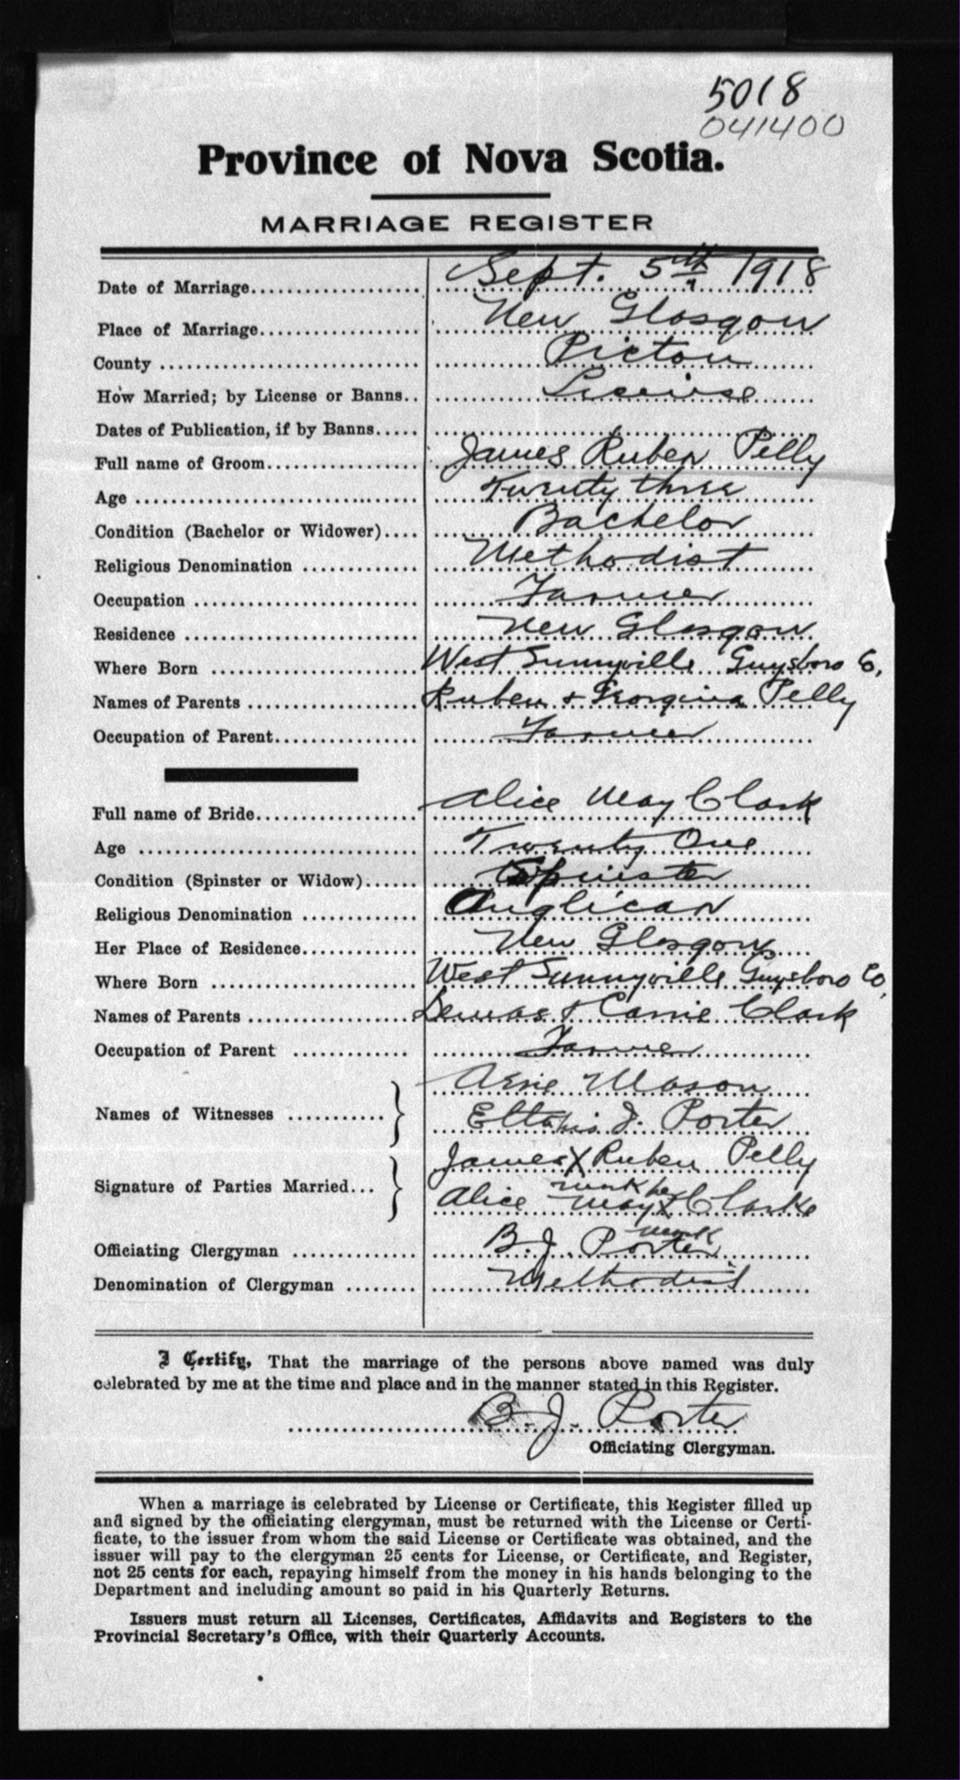 5018
041400
Province of Nova Scotia.
MARRIAGE REGISTER
Date of Marriage Sept. 5th 1918
Place of Marriage New Glasgow
County Pictou
How Married; by License or Banns License
Dates of Publication, if by Banns
Full name of Groom James Ruben Pelly
Age Twenty three
Condition (Bachelor or Widower) Bachelor
Religious Denomination Methodist
Occupation Farmer
Residence New Glasgow
Where Born West Sunnyville Guysboro Co,
Names of Parents Ruben & Georgina Pelly
Occupation of Parent Farmer
Full name of Bride Alice May Clark
Age Twenty One
Condition (Spinster or Widow) Spinster
Religious Denomination Anglican
Her Place of Residence New Glasgow
Where Born West Sunnyville Guysboro Co,
Names of Parents & Carrie Clark
Occupation of Parent Farmer
Names of Witnesses Mason
J. Porter
his
Signature of Parties Married James X Ruben Pelly
mark her
Alice May X Clarke
mark
Officiating Clergyman B. J. Porter
Denomination of Clergyman Methodist
I Certify, That the marriage of the persons above named was duly
celebrated by me at the time and place and in the manner stated in this Register.
B. J. Porter
Officiating Clergyman.
When a marriage is celebrated by License or Certificate, this Register filled up
and signed by the officiating clergyman, must be returned with the License or Certi-
ficate, to the issuer from whom the said License or Certificate was obtained, and the
issuer will pay to the clergyman 25 cents for License, or Certificate, and Register,
not 25 cents for each, repaying himself from the money in his hands belonging to the
Department and including amount so paid in his Quarterly Returns.
Issuers must return all Licenses, Certificates, Affidavits and Registers to the
Provincial Secretary's Office, with their Quarterly Accounts.